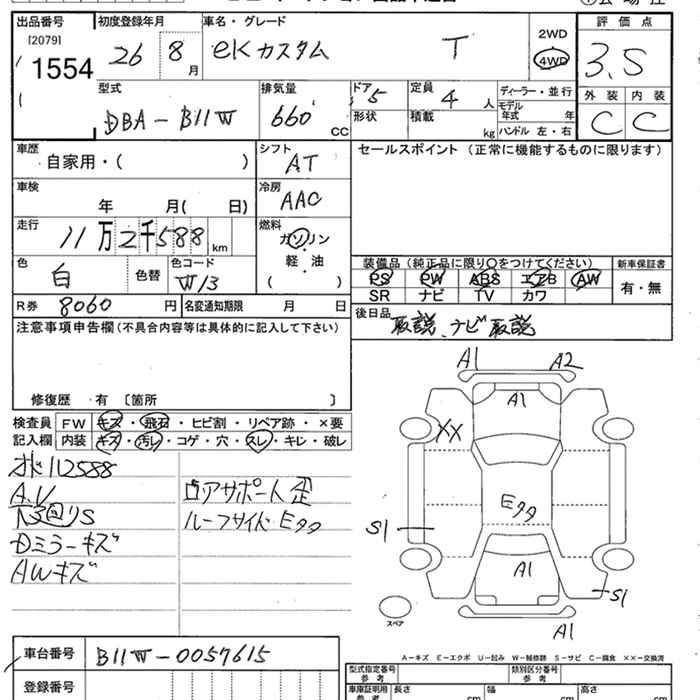 出品番号 初度登録年月 車名・グレード 評価点
[2079]
1554
26 8月 eKカスタム T 2WD 4WD 3.5
型式 排気量 ドア 定員 ディーラー・並行 外装 内装
DBA-B11W 660 CC 5 4人 モデル年式 年 C C
形状 積載 kg ハンドル 左・右
車歴 シフト セールスポイント (正常に機能するものに限ります)
自家用・( ) AT
車検 冷房
年 月( 日) AAC
走行 燃料
11万2千588km ガソリン
軽・油
( )
色 色替 色コード
白 W13
装備品(純正品に限り○をつけてください) 新車保証書
PS PW ABS エアB AW 有・無
SR ナビ TV カワ
R券 8060円 名変通知期限 月 日
後日品 取説、ナビ取説
注意事項申告欄(不具合内容等は具体的に記入して下さい)
修復歴 有 〔箇所 〕
検査員 FW キズ・飛石・ヒビ割・リペア跡・×要
記入欄 内装 キズ・汚レ・コゲ・穴・スレ・キレ・破レ
112588
A.V
下廻りS
Dミラーキズ
AWキズ
コアサポート歪
ルーフサイドEクク
A1 A2
A1
XX
Eクク
S1
A1
S1
スペア
A1
A-キズ E-エクボ U-凹み W-補修跡 S-サビ C-腐食 ××-交換済
車台番号 B11W-0057615
登録番号
型式指定番号 参考 類別区分番号 参考
車庫証明用 参考 長さ cm 幅 cm 高さ cm